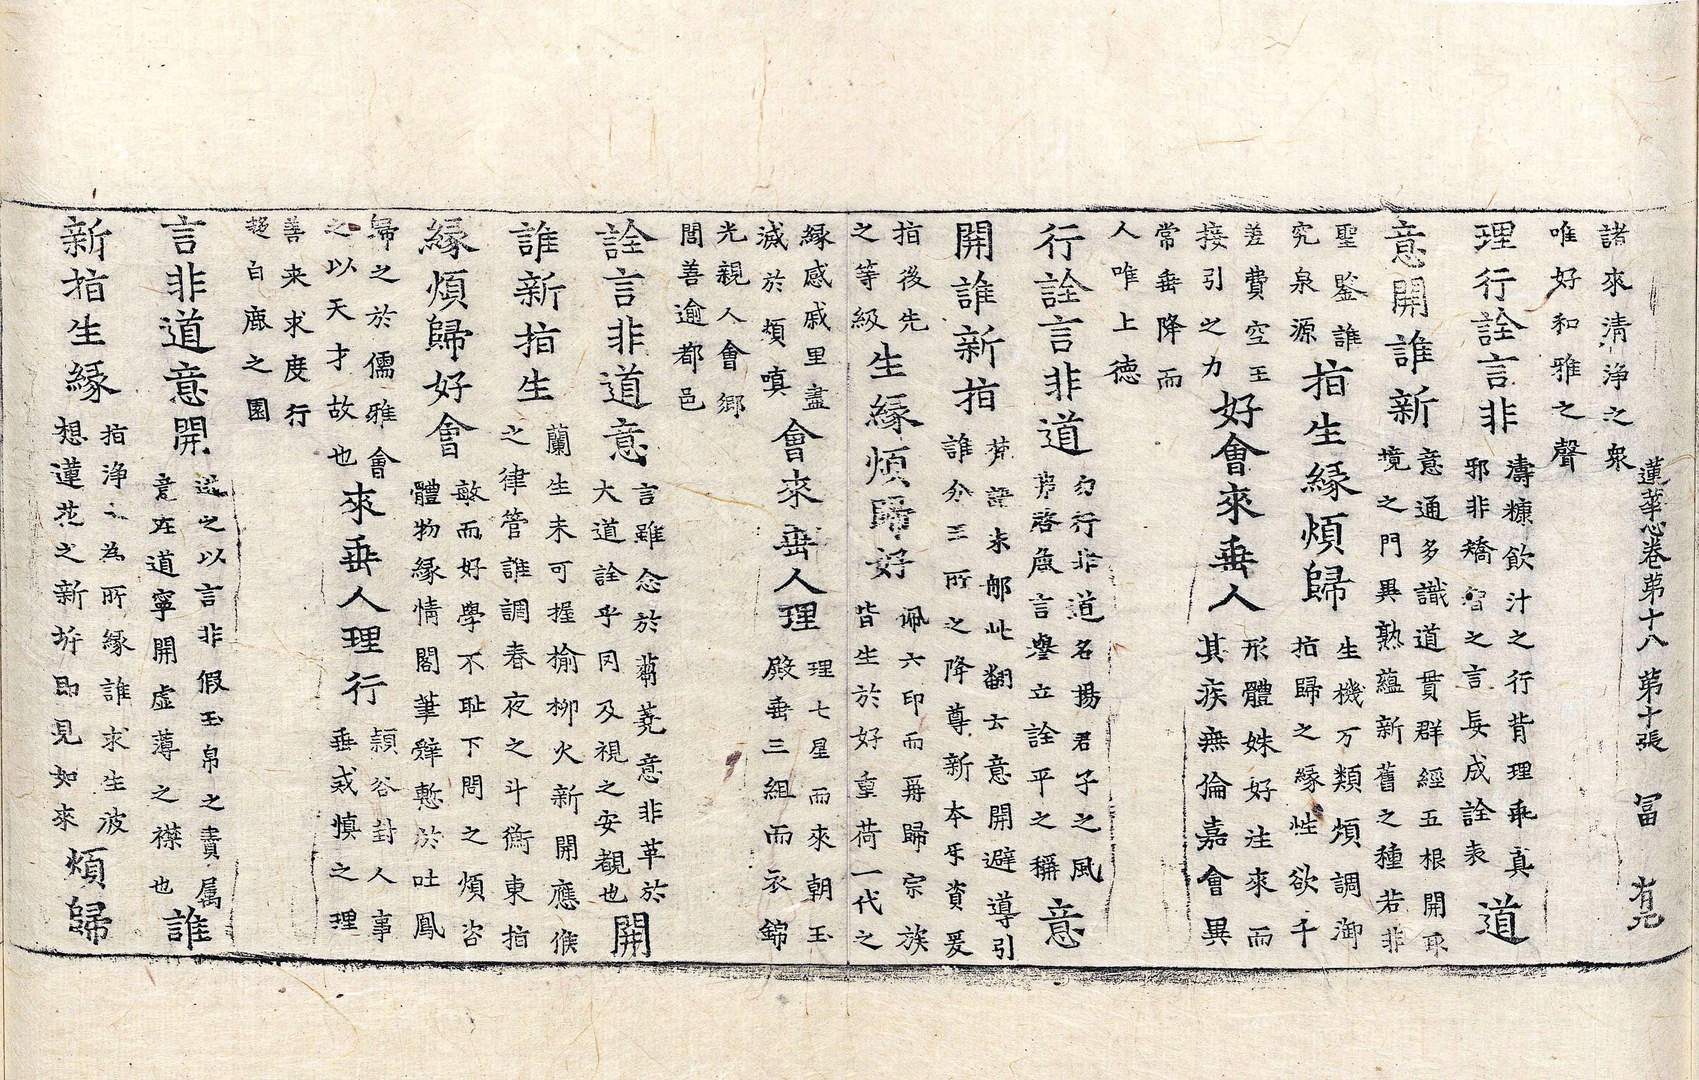 蓮華心卷第十八 第十張 冨 有
諸來清淨之衆
唯好和雅之聲
理行詮言非
濤糠飲汁之行背理乖真
邪非矯智之言長成詮表
道
意開誰新
意通多識道貫群經五根開
境之門異熟蘊新舊之種若非
聖鑒誰
究泉源
指生緣煩歸
生機万類煩調御
指歸之緣性欲千
差費空王
接引之力
好會來垂人
形體姝好注來而
其疾無倫嘉會異
常垂降而
人唯上德
行詮言非道
勿行非道名揚君子之風
啓危言譽立詮平之稱
意
開誰新指
梵語末郍此翻云意開避導引
誰分三所之降尊新本牙資爰
指後先
之等級
生緣煩歸好
佩六印而再歸宗族
皆生於好重荷一代之
緣感戚里盡
滅於煩嗔
會來垂人理
理七星而來朝玉
殿垂三組而衣錦
光親人會鄉
閭善逾都邑
詮言非道意
言雖念於蒭蕘意非革於
大道詮乎同及視之安觀也
開
誰新指生
蘭生未可握榆柳火新開應候
之律管誰調春夜之斗衡東指
緣煩歸好會
敏而好學不耻下問之煩咨
體物緣情閣筆辤慙於吐鳳
歸之於儒雅會
之以天才故也
來垂人理行
頴谷封人事
垂戒慎之理
善來求度行
趂白鹿之園
言非道意開
述之以言非假玉帛之賣属
意在道寧開虛薄之襟也
誰
新指生緣
指淨之為所緣誰求生波
想蓮花之新坼即見如來
煩歸